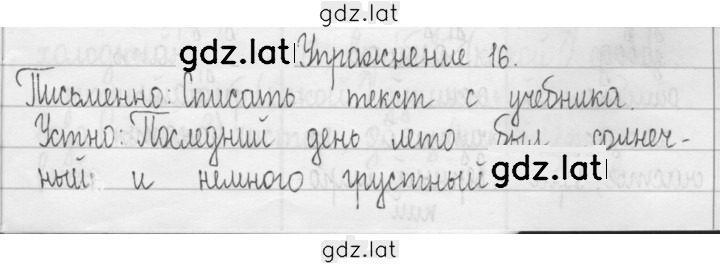 gdz.lat
gdz.lat Упражнение 16.
Письменно: Списать текст с учебника.
Устно: Последний день лето был солнеч-
ный и немного грустный gdz.lat
gdz.lat